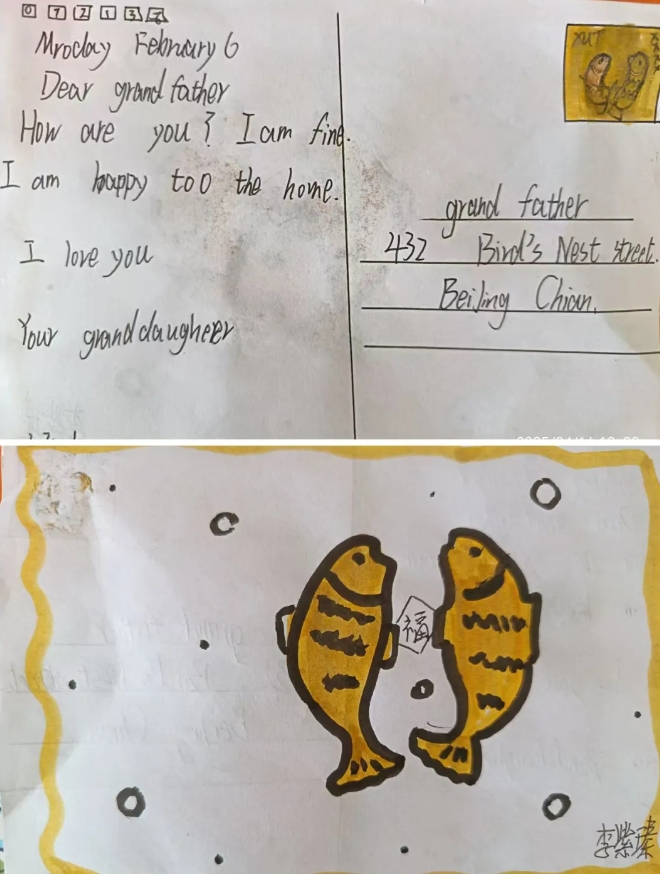 0 7 2 1 3
Mroday February 6
Dear grand father
How are you? I am fine.
I am happy too the home.
I love you
Your granddaugheer
XUT
grand father
432 Bird's Nest street.
BeiJing Chian.
福
李紫